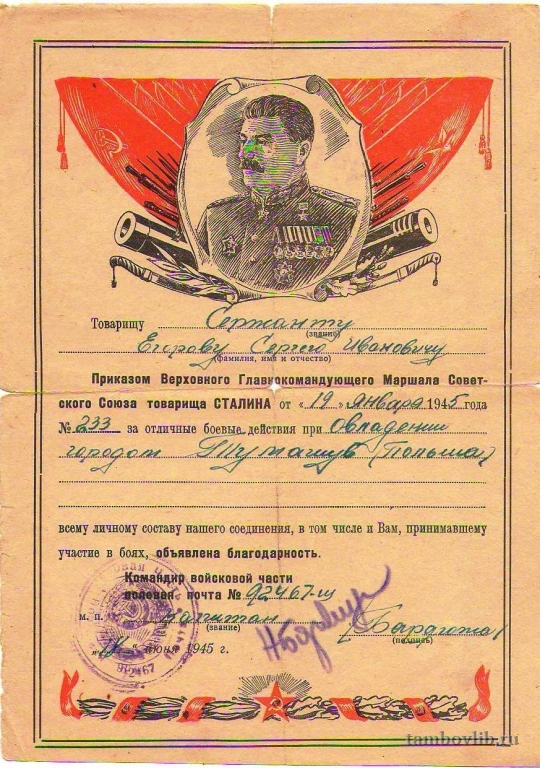 Товарищу Сержанту
(звание)
Егорову Сергею Ивановичу
(фамилия, имя и отчество)
Приказом Верховного Главнокомандующего Маршала Совет-
ского Союза товарища СТАЛИНА от «19» января 1945 года
№ 233 за отличные боевые действия при Овладении
городом Тумашув (Польша)
всему личному составу нашего соединения, в том числе и Вам, принимавшему
участие в боях, объявлена благодарность.
Командир войсковой части
полевая почта № 92467-
м. п. Капитан
(звание)
(подпись)
июня 1945 г.
tambovlib.ru